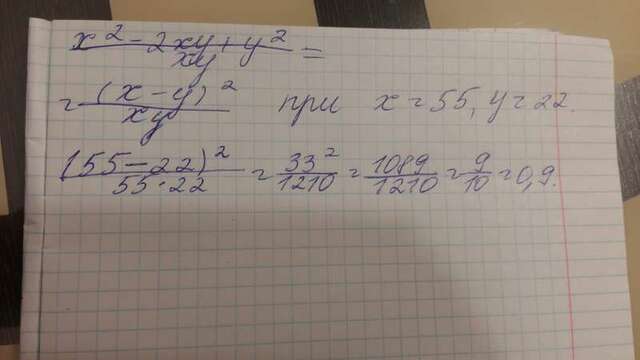 x² - 2xy + y² / xy =
= (x - y)² / xy при x = 55, y = 22.
(55 - 22)² / 55 · 22 = 33² / 1210 = 1089 / 1210 = 9 / 10 = 0,9.